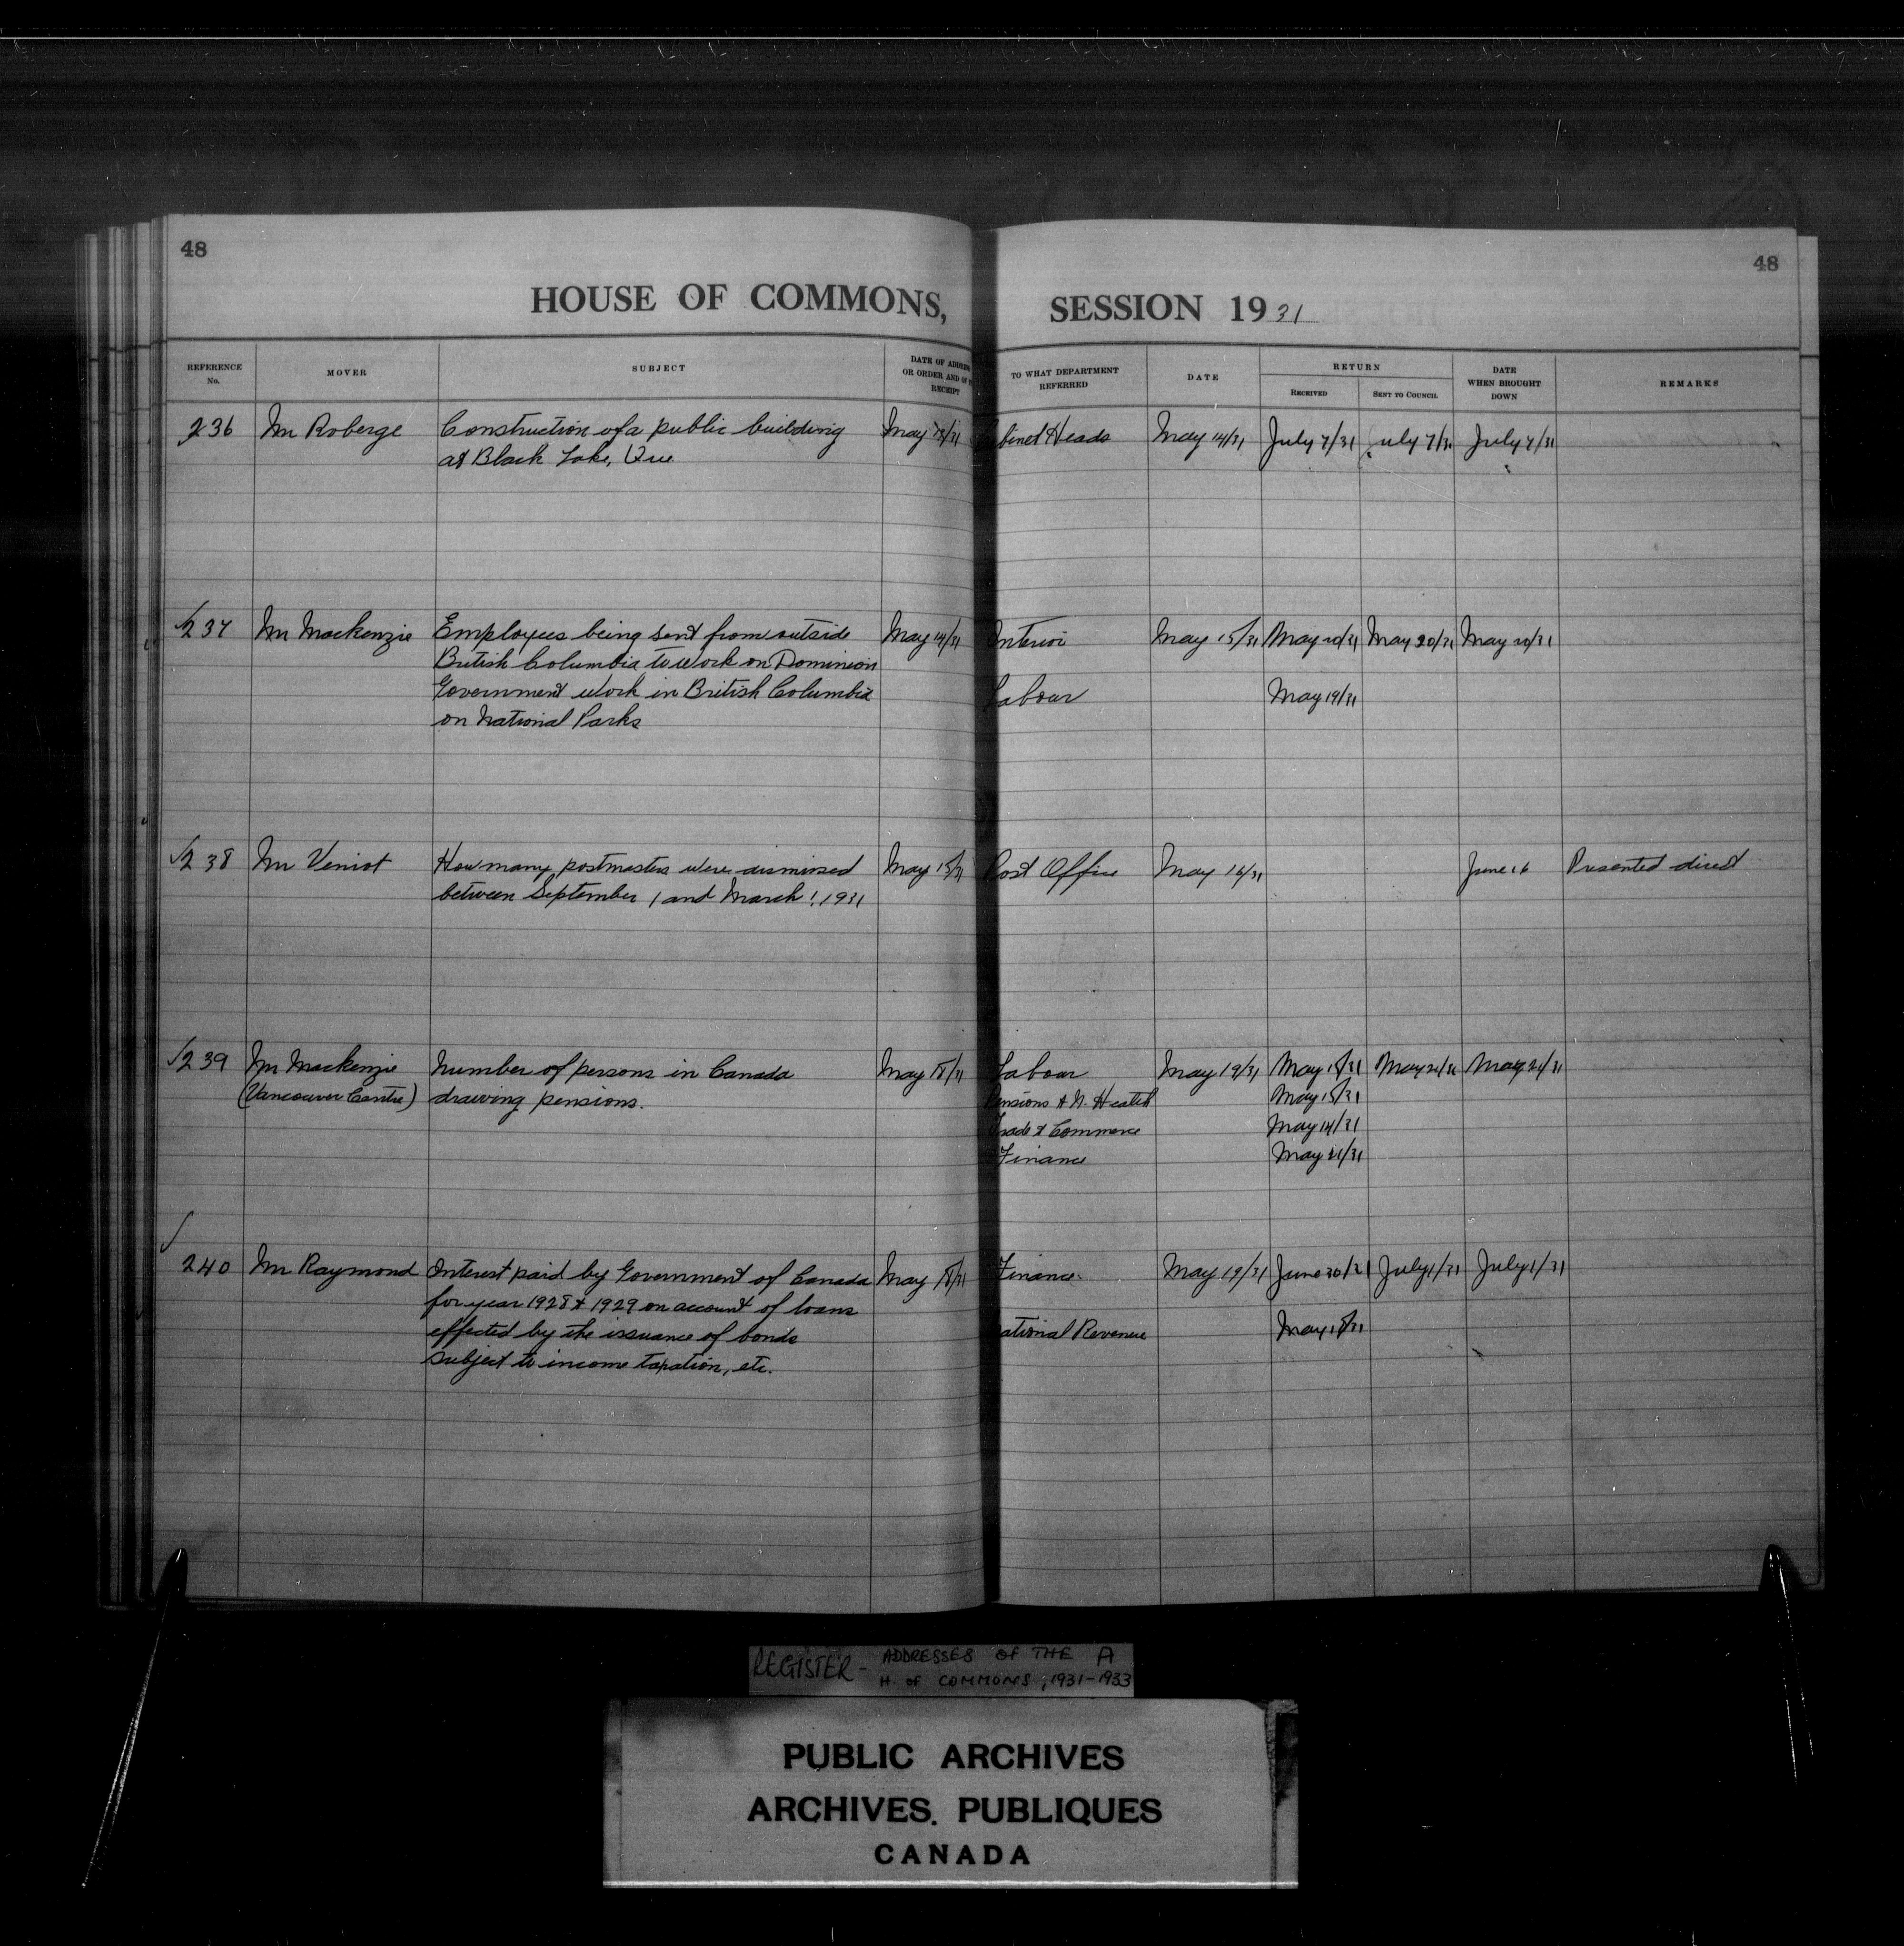 48
48
HOUSE OF COMMONS, SESSION 1931
REFERENCE No. MOVER SUBJECT DATE OF ADDRESS OR ORDER AND OF RECEIPT TO WHAT DEPARTMENT REFERRED DATE RETURN RECEIVED SENT TO COUNCIL DATE WHEN BROUGHT DOWN REMARKS
236 Mr Roberge Construction of a public building May 13/31 Cabinet Heads May 14/31 July 7/31 July 7/31 July 7/31
at Black Lake, Que
237 Mr Mackenzie Employees being sent from outside May 14/31 Interior May 15/31 May 20/31 May 20/31 May 20/31
British Columbia to work on Dominion
Government work in British Columbia Labour May 19/31
on National Parks
238 Mr Veniot How many postmasters were dismissed May 15/31 Post Office May 16/31 June 16 Presented direct
between September 1 and March 1, 1931
239 Mr Mackenzie Number of persons in Canada May 18/31 Labour May 19/31 May 18/31 May 21/31 May 21/31
(Vancouver Centre) drawing pensions. Pensions & N. Health May 15/31
Trade & Commerce May 14/31
Finance May 21/31
240 Mr Raymond Interest paid by Government of Canada May 18/31 Finance May 19/31 June 30/31 July 1/31 July 1/31
for year 1928 & 1929 on account of loans
effected by the issuance of bonds National Revenue May 18/31
subject to income taxation, etc.
REGISTER - ADDRESSES OF THE A
H. of COMMONS, 1931-1933
PUBLIC ARCHIVES
ARCHIVES PUBLIQUES
CANADA